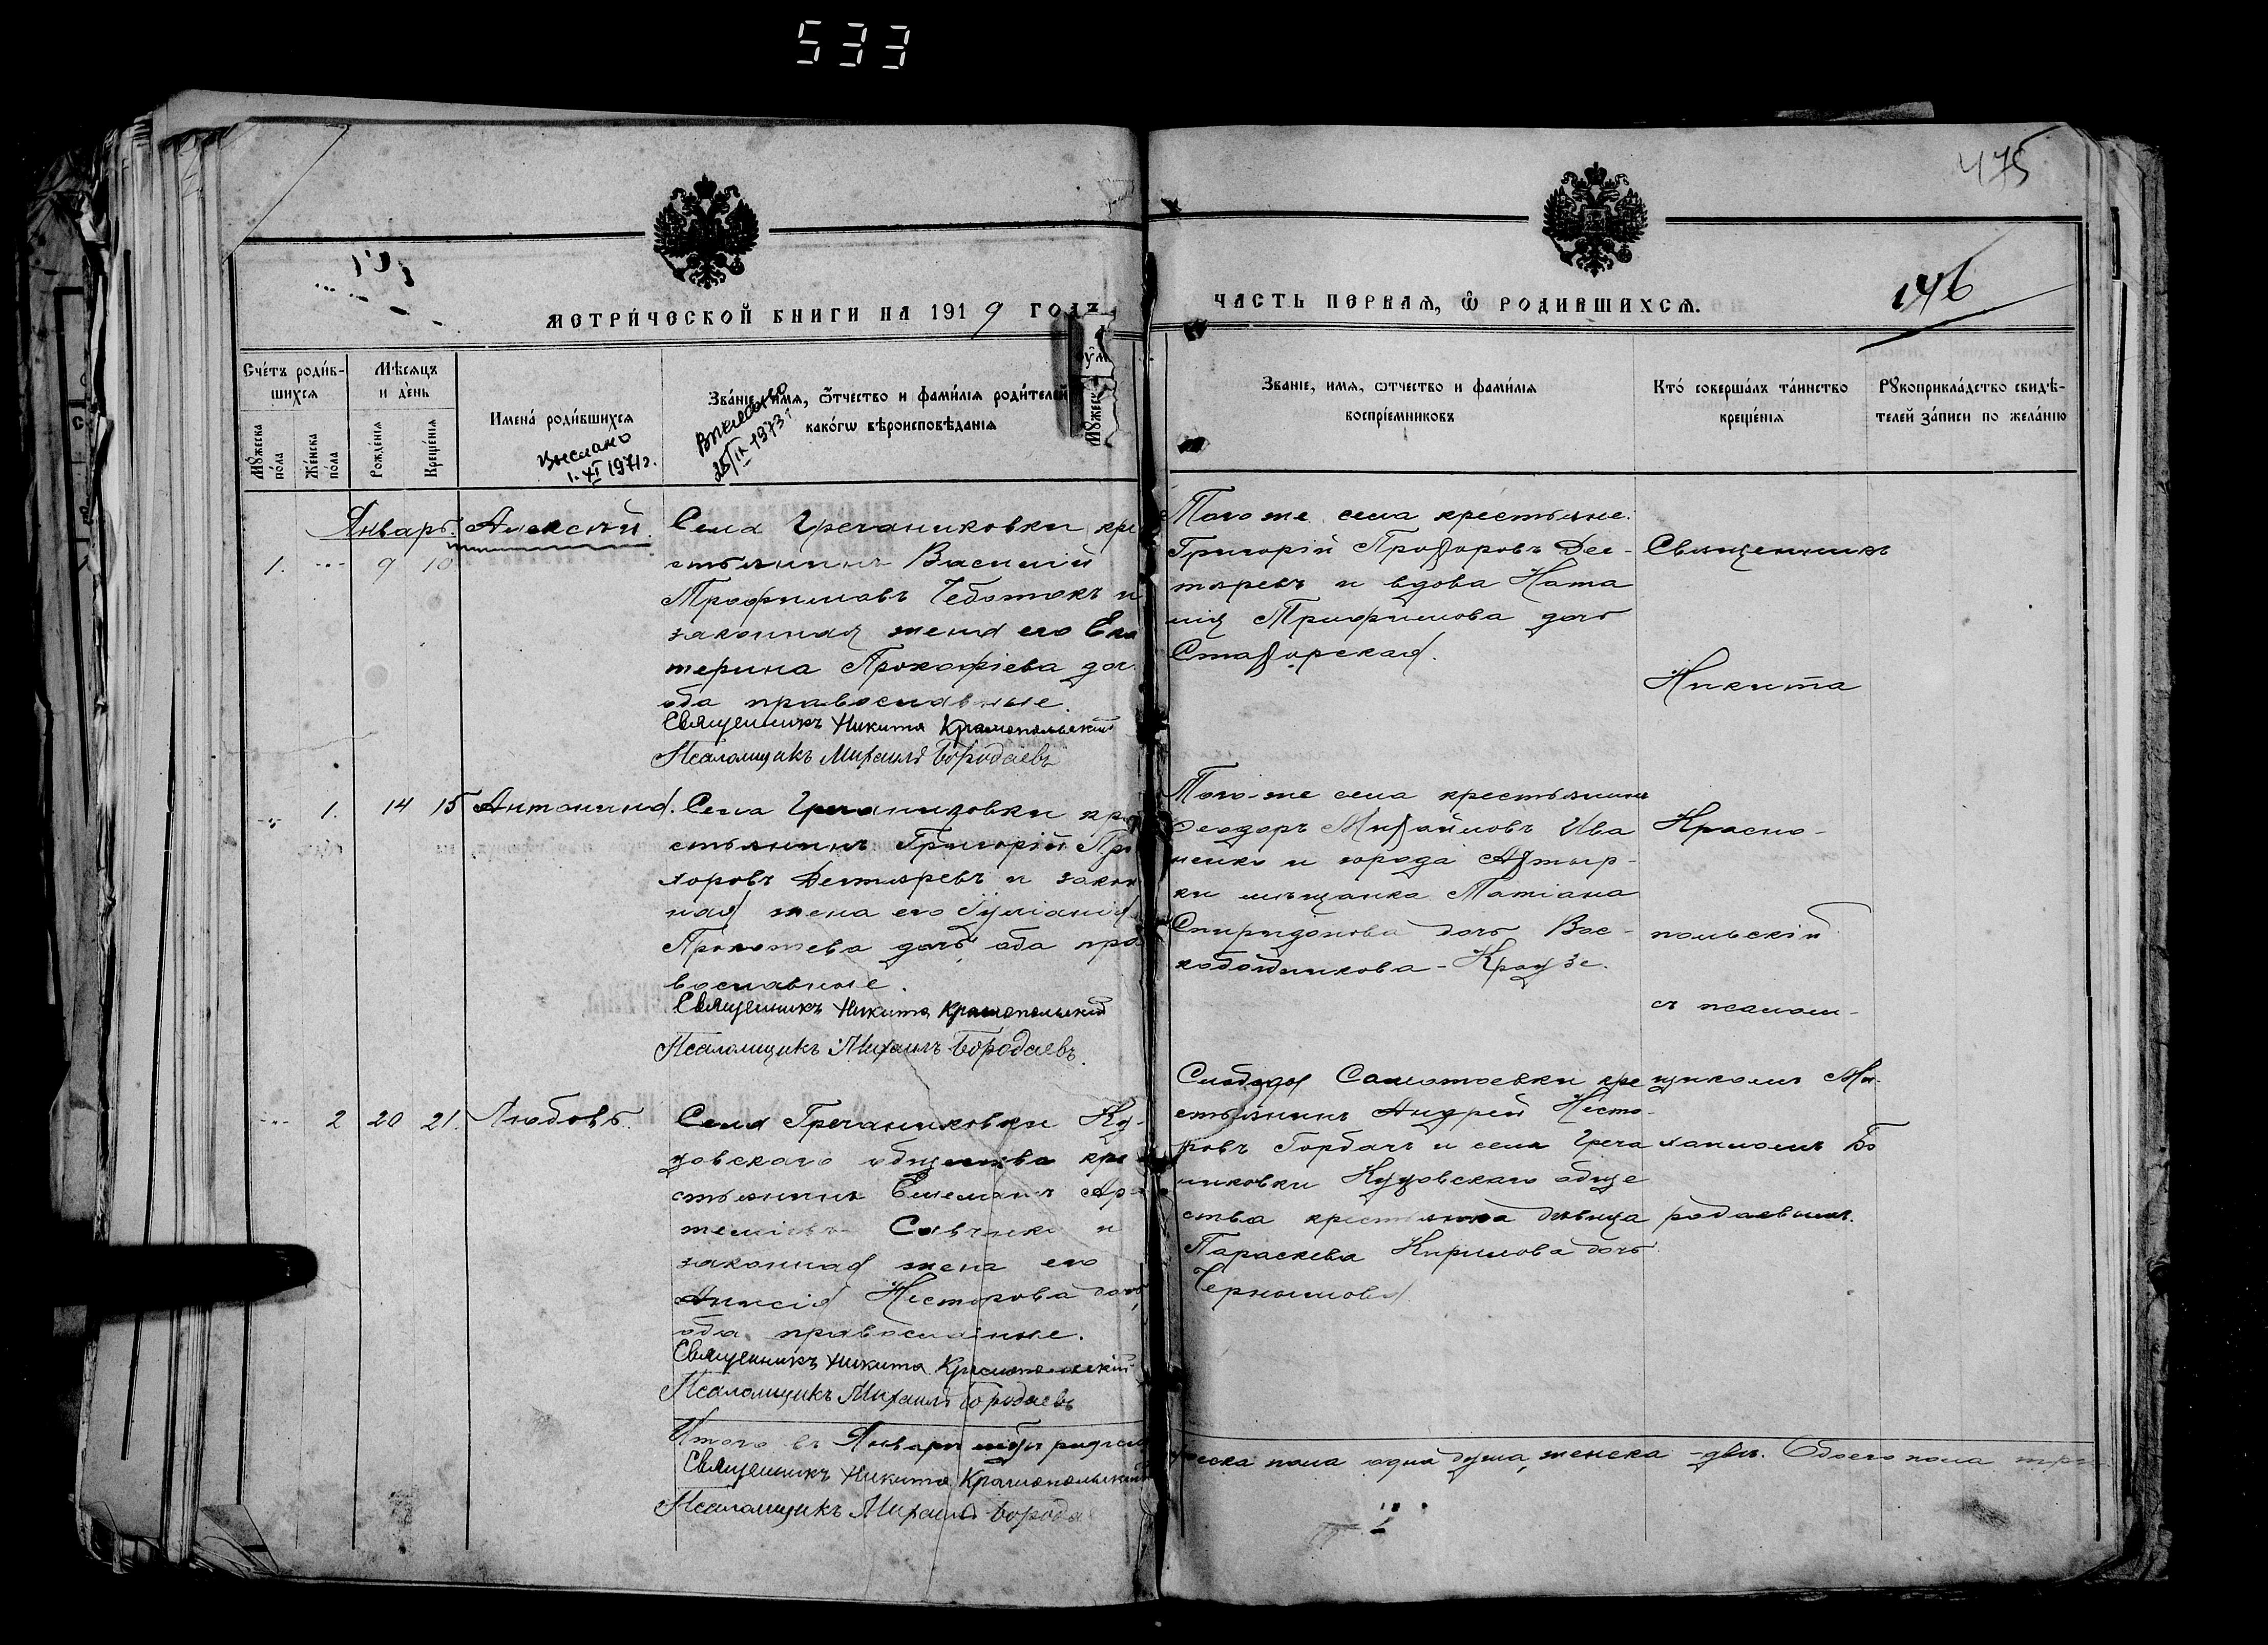 533
475
146
МЕТРИЧЕСКОЙ КНИГИ НА 1919 ГОДЪ
ЧАСТЬ ПЕРВАЯ, Ѿ РОДИВШИХСЯ.
Счетъ родив-
шихся
Мѣсяцъ
и день
Мужеска
пола
Женска
пола
Рожденія
Крещенія
Имена родившихся
выслано
1.XI 1971г.
Званіе, имя, ѿчество и фамилія родителей
какогѡ вѣроисповѣданія
25/IX-1973г
Званіе, имя, ѿтчество и фамилія
воспріемниковъ
Кто совершалъ таинство
крещенія
Рукоприкладство свидѣ-
телей записи по желанію
Январь.
1. 9 10
Алексѣй.
Села Гречаниковки кре
стьянинъ Василій
Трофимовъ Чеботокъ и
законная жена его Ека
терина Прокофіева доч
оба православные.
Священникъ Никита Краснопольский
Псаломщикъ Михаилъ Бородаевъ
Того же села крестьяне:
Григорій Прохоровъ Дег-
тяревъ и вдова Ната
лія Трифимова дочь
Стахорская.
Священникъ
Никита
1. 14 15
Антонина.
Села Гречаниковки кре
стьянинъ Григорій Про
хоровъ Дегтяревъ и закон
ная жена его Іуліанія
дочь, оба пра
вославные.
Священникъ Никита Краснопольский
Псаломщикъ Михаилъ Бородаевъ
Того-же села крестьянинъ
Ѳеодоръ Михайловъ Ива
ненко и города Ахтыр-
ки мѣщанка Татіана
Спиридонова дочь Вос-
кобойникова-Краузе.
Красно-
польскій
съ псалом-
2 20 21.
Любовь.
Села Гречаниковки Ку-
цовскаго общества кре
стьянинъ Ар-
и
законная жена его
Анисія Несторова дочь,
оба православные.
Священникъ Никита Краснопольский
Псаломщикъ Михаилъ Бородаевъ
Слободы Самотоевки кре
стьянинъ Андрей Несто-
ровъ Горбачъ и села Греча
никовки Куцовскаго обще
ства крестьянка дѣвица
Параскева Кирилова дочь
щикомъ Ми-
хаиломъ Бо
родаевымъ.
Итого въ Январѣ
жеска пола одна душа, женска - двѣ. Обоего пола три
Священникъ Никита Краснопольский
Псаломщикъ Михаилъ Борода